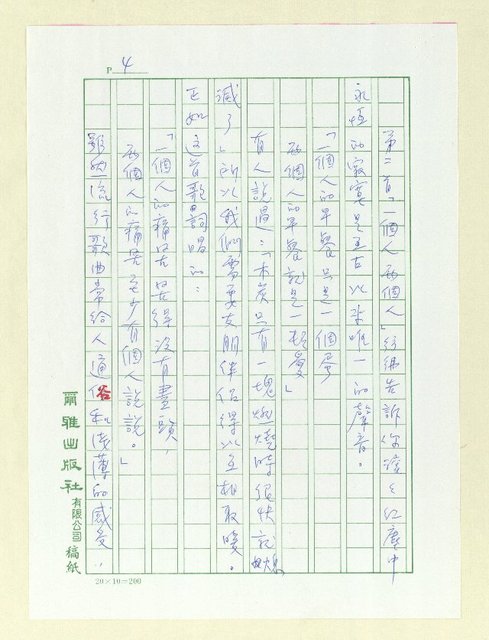 P 4
第二首「一個人兩個人」彷彿告訴你滾滾紅塵中
永恆的寂寞是亙古以來唯一的聲音。
「一個人的早餐只是一個
兩個人的早餐就是一頓
有人說過:「木炭只有一塊燃燒時很快就熄
滅了」所以我們需要友朋伴侶得以互相取暖。
正如這首歌詞唱的:
「一個人的痛苦苦得沒有盡頭,
兩個人的痛苦至少有個人說說。」
雖然流行歌曲常給人通俗和淺薄的感受,
爾雅出版社有限公司稿紙
20×10=200